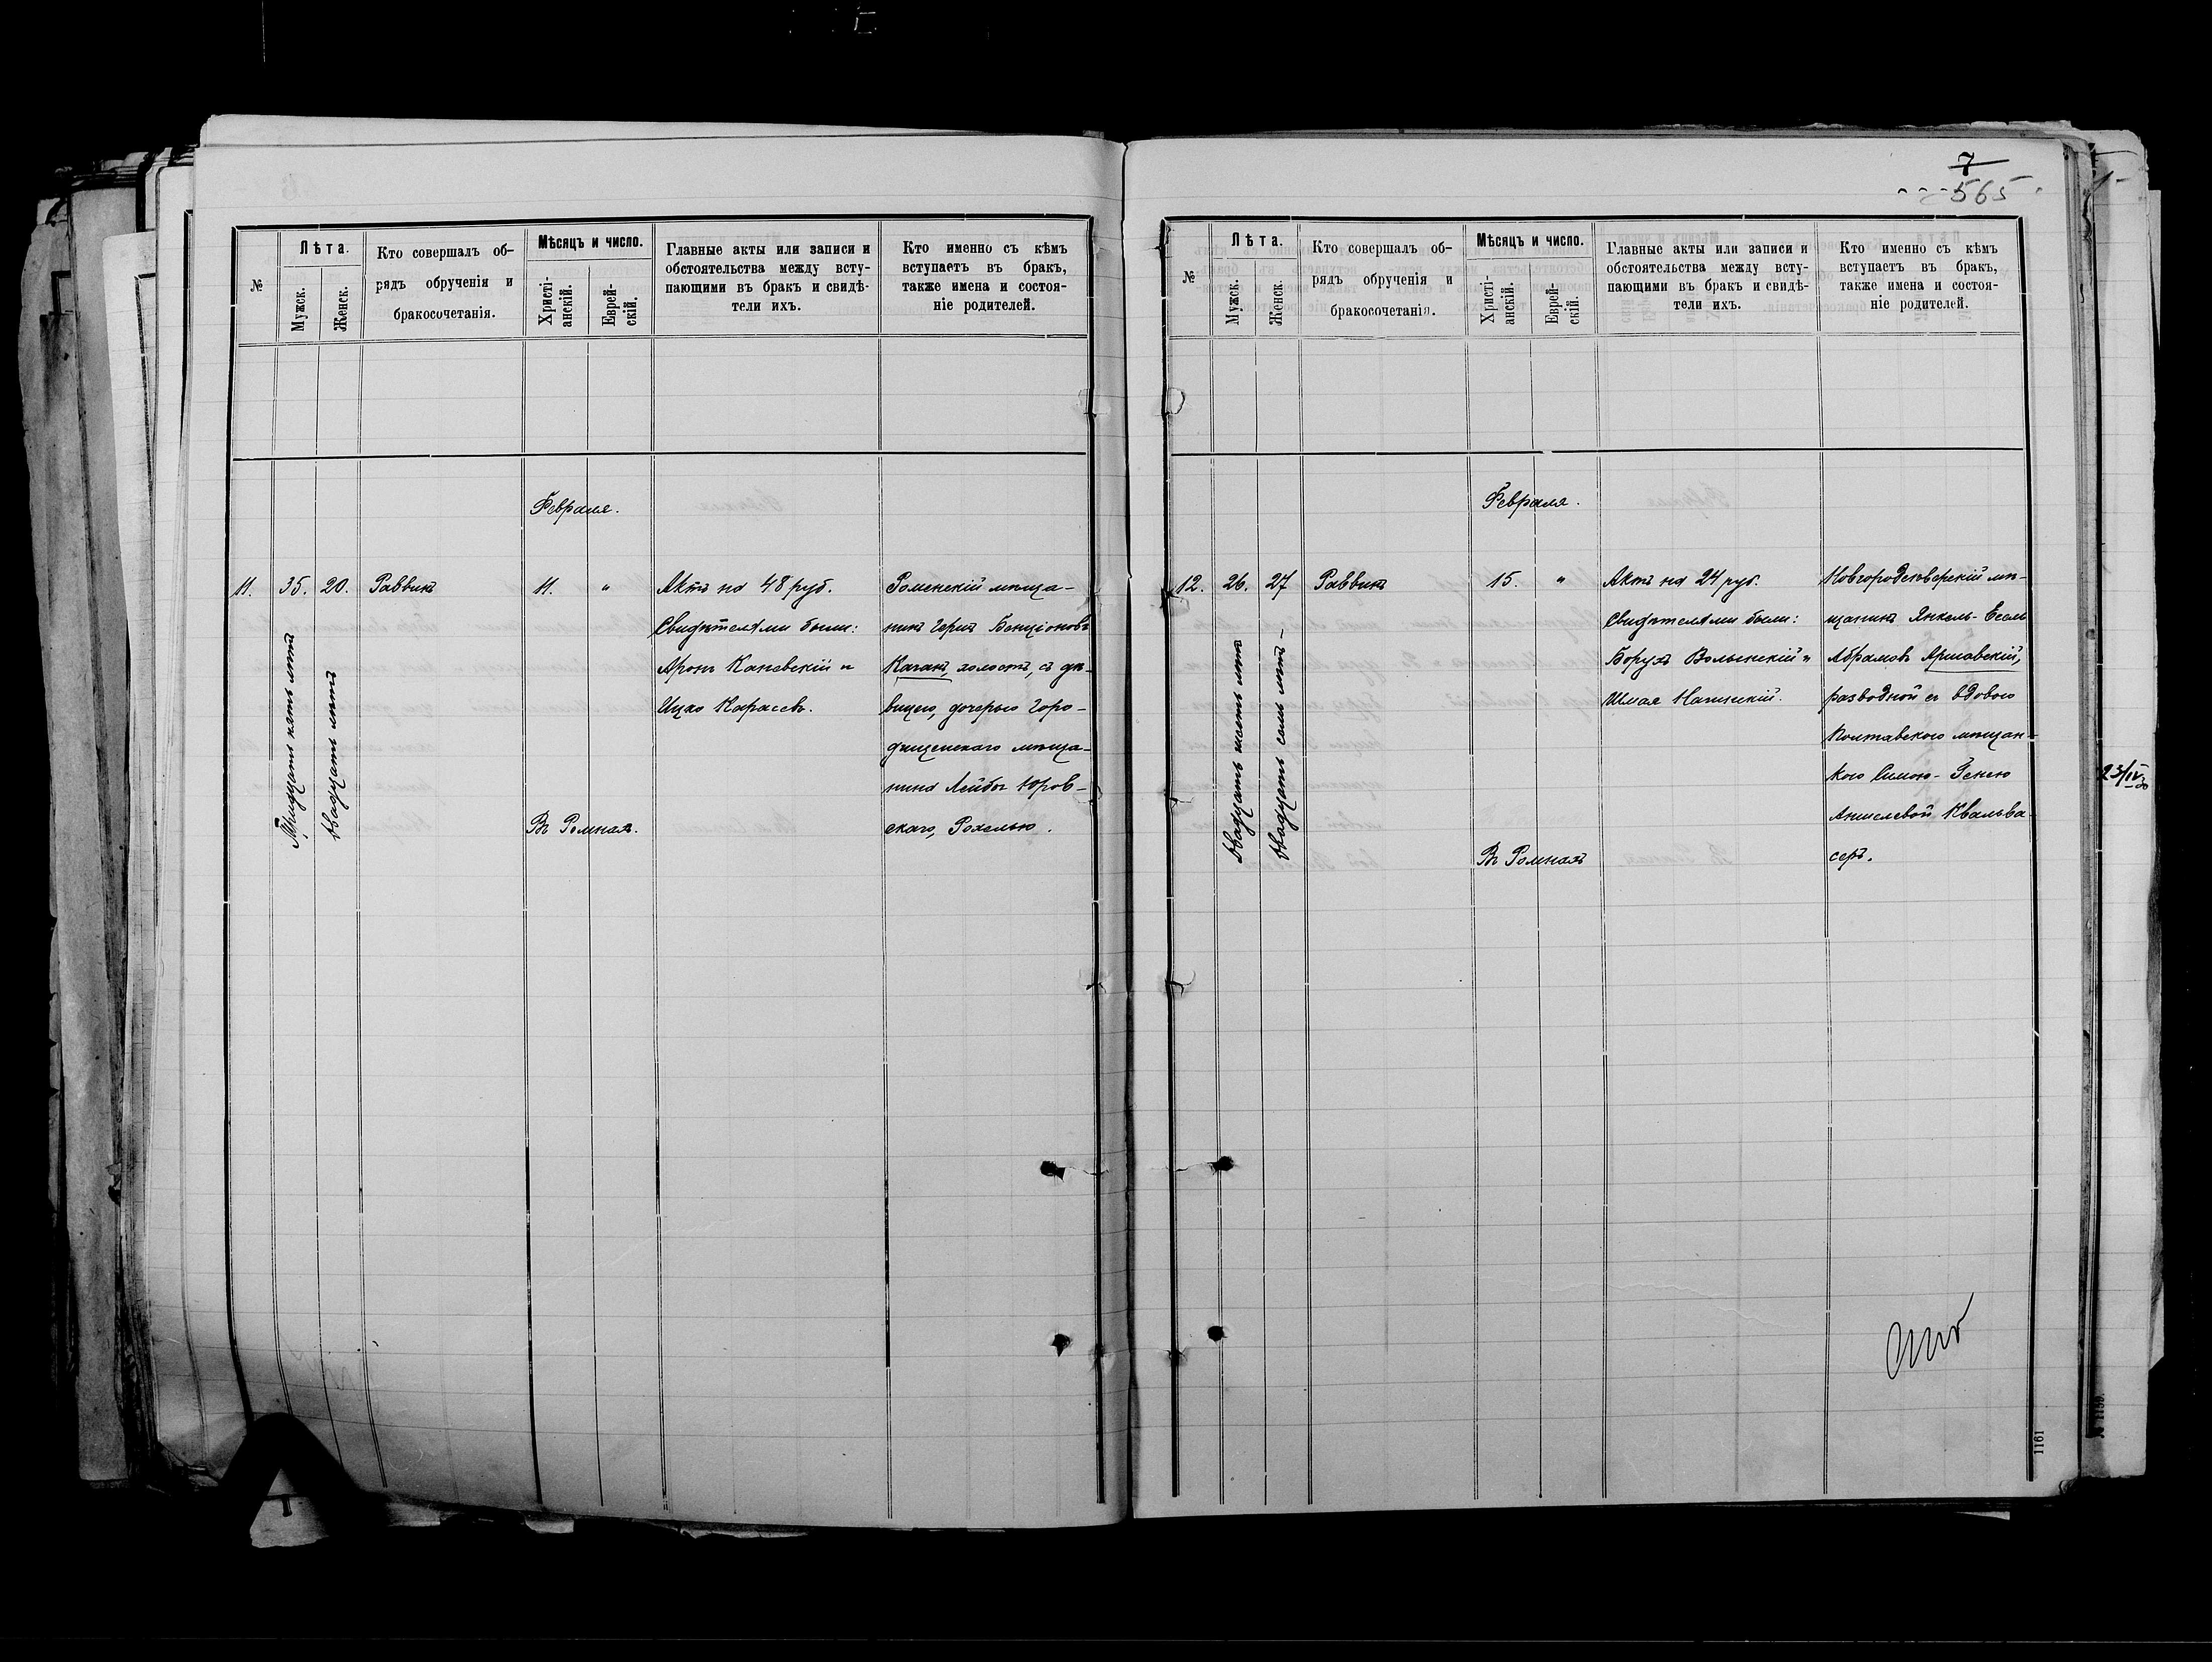 7
565
№
Лѣта.
Мужск.
Женск.
Кто совершалъ об-
рядъ обрученія и
бракосочетанія.
Мѣсяцъ и число.
Христі-
анскій.
Еврей-
скій.
Главные акты или записи и
обстоятельства между всту-
пающими въ бракъ и свидѣ-
тели ихъ.
Кто именно съ кѣмъ
вступаетъ въ бракъ,
также имена и состоя-
ніе родителей.
Февраля.
11.
35.
Тридцать пять лѣтъ
20.
двадцать лѣтъ
Раввинъ
11.
"
Въ Ромнахъ.
Актъ на 48 руб.
Свидѣтелями были:
Аронъ Каневскій и
Ицко Карасевъ.
Роменскій мѣща-
нинъ Герцъ Бенціоновъ
Каганъ, холостъ, съ дѣ-
вицею, дочерью Горо-
дищенскаго мѣща-
нина Лейбы Юров-
скаго, Рохелью.
№
Лѣта.
Мужск.
Женск.
Кто совершалъ об-
рядъ обрученія и
бракосочетанія.
Мѣсяцъ и число.
Христі-
анскій.
Еврей-
скій.
Главные акты или записи и
обстоятельства между всту-
пающими въ бракъ и свидѣ-
тели ихъ.
Кто именно съ кѣмъ
вступаетъ въ бракъ,
также имена и состоя-
ніе родителей.
Февраля.
12.
26.
двадцать шесть лѣтъ
27
двадцать семь лѣтъ
Раввинъ
15.
"
Въ Ромнахъ
Актъ на 24 руб.
Свидѣтелями были:
Борухъ Волынскій и
Шмая
Новгородсѣверскій мѣ-
щанинъ Янкель-Есель
Абрамовъ Аршавскій,
разводной съ вдовою
Полтавскою мѣщан-
кою Симою-Генею
Аншелевой Квальва-
серъ.
1161